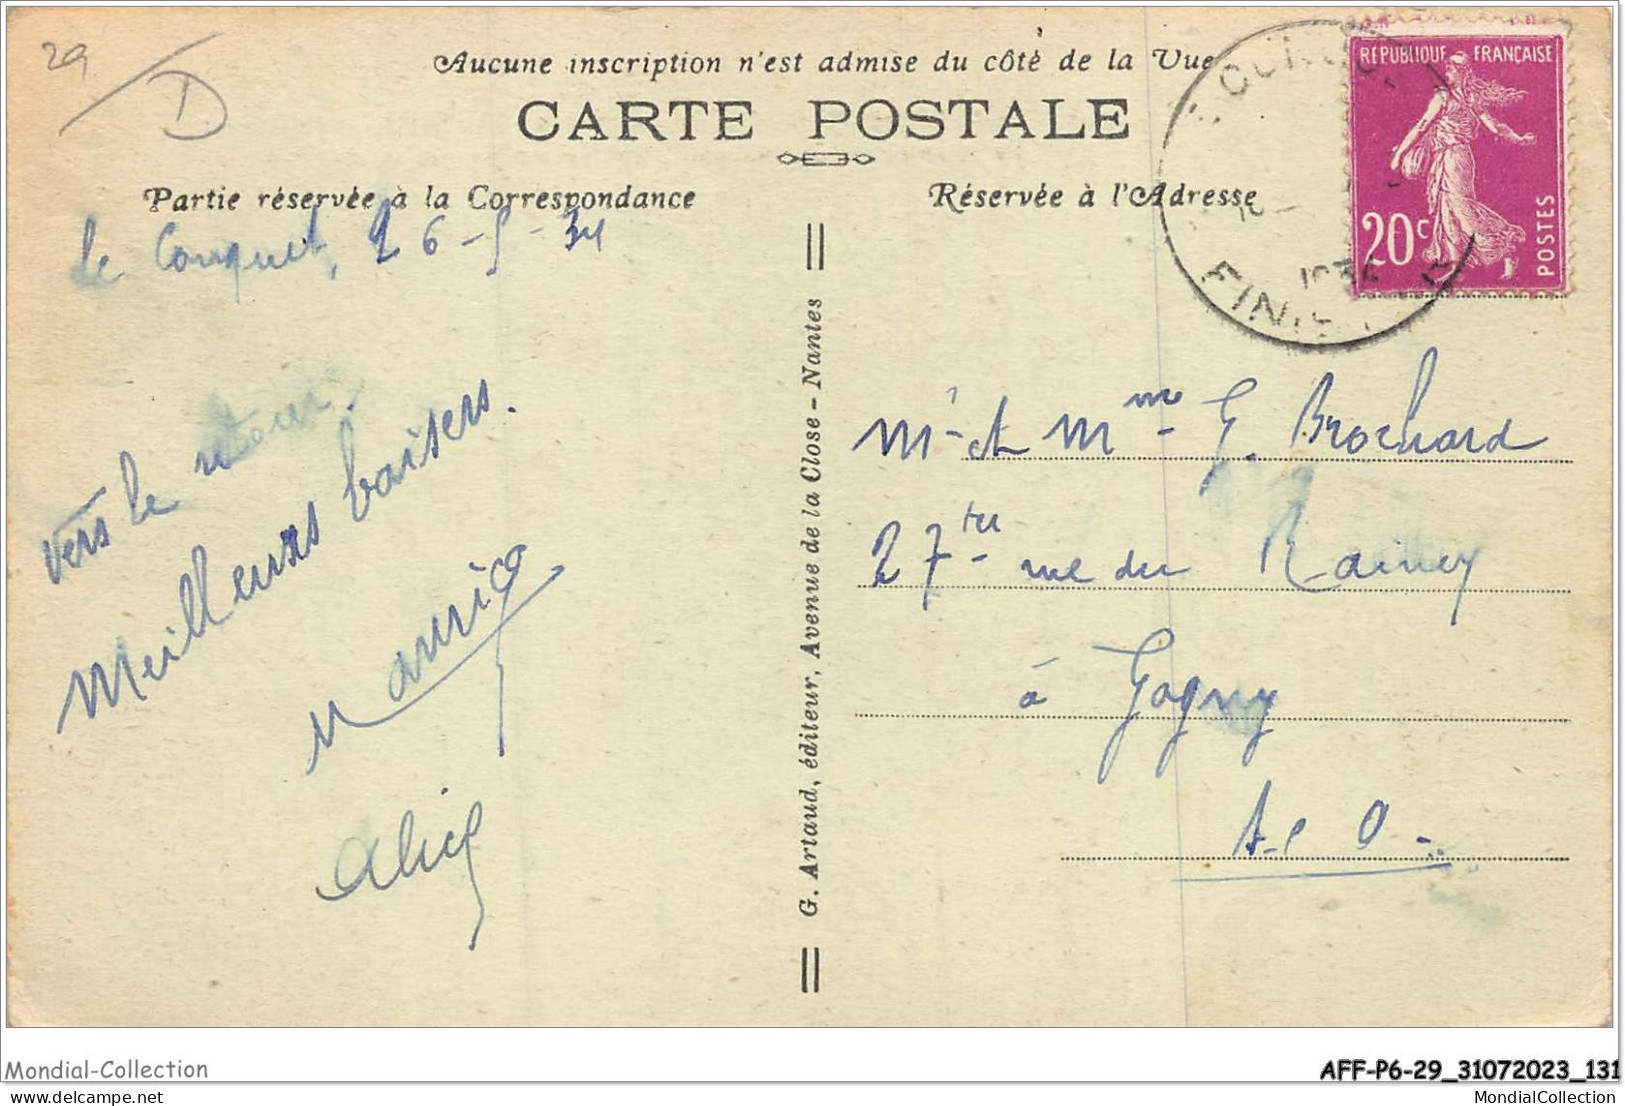 29
D
Aucune inscription n'est admise du côté de la Vue
CARTE POSTALE
Partie réservée à la Correspondance
Réservée à l'Adresse
RÉPUBLIQUE FRANÇAISE
20c
POSTES
FINIS
Le Conquet, 26-5-34
vers le retour,
Meilleurs baisers.
Maurice
Alice
G. Artaud, éditeur, Avenue de la Close - Nantes
Mr et Mme G. Brochard
27ter rue du Raincy
à Gagny
S.et O.
Mondial-Collection
AFF-P6-29_31072023_131
mondial-collection
MondialCollection